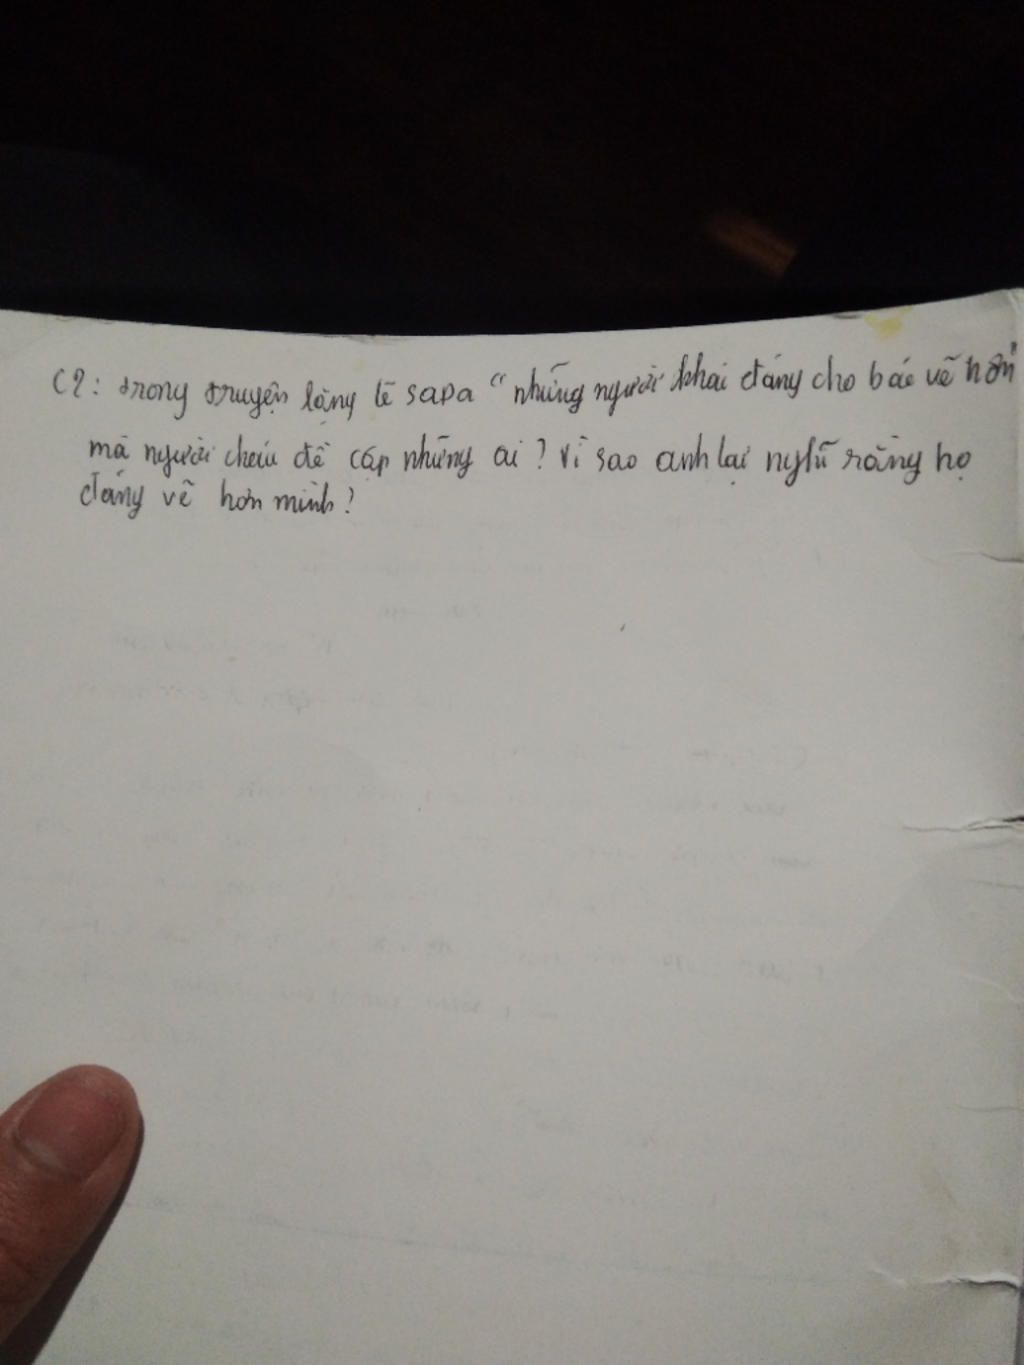 C2: trong truyện lặng lẽ sapa "những người khai đáng cho bác vẽ hơn
mà người cháu đề cập những ai? Vì sao anh lại nghĩ rằng họ
đáng vẽ hơn mình?